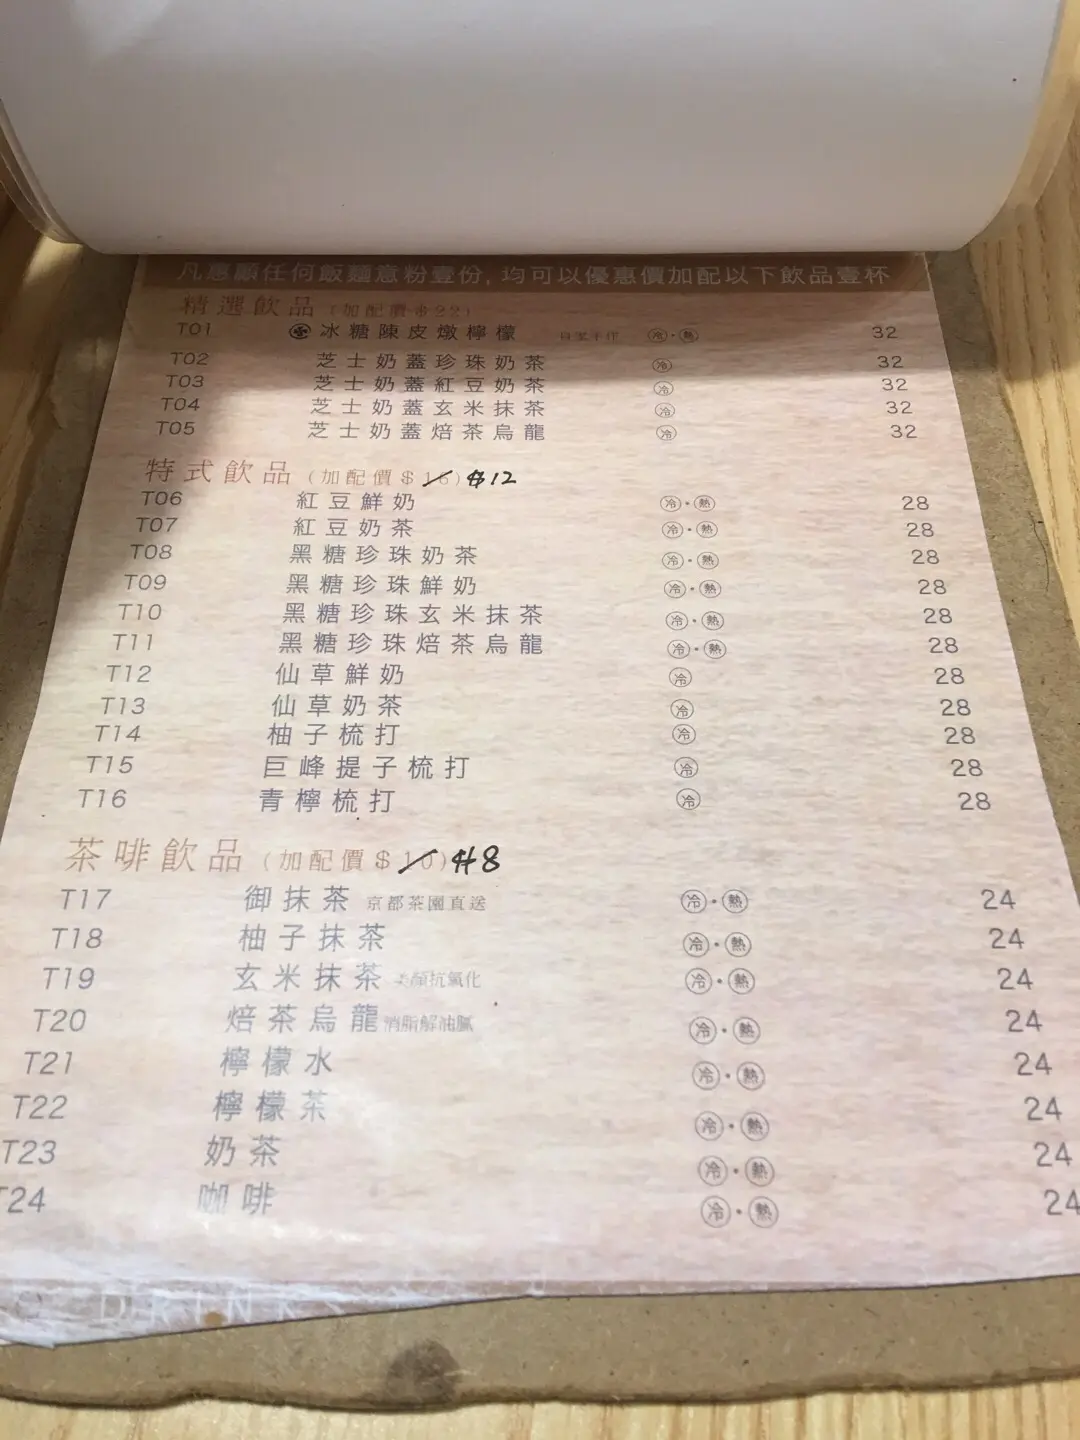 凡惠顧任何飯麵意粉壹份, 均可以優惠價加配以下飲品壹杯
精選飲品 (加配價 $22)
T01 冰糖陳皮燉檸檬 冷・熱 32
T02 芝士奶蓋珍珠奶茶 冷 32
T03 芝士奶蓋紅豆奶茶 冷 32
T04 芝士奶蓋玄米抹茶 冷 32
T05 芝士奶蓋焙茶烏龍 冷 32
特式飲品 (加配價 $16) $12
T06 紅豆鮮奶 冷・熱 28
T07 紅豆奶茶 冷・熱 28
T08 黑糖珍珠奶茶 冷・熱 28
T09 黑糖珍珠鮮奶 冷・熱 28
T10 黑糖珍珠玄米抹茶 冷・熱 28
T11 黑糖珍珠焙茶烏龍 冷・熱 28
T12 仙草鮮奶 冷 28
T13 仙草奶茶 冷 28
T14 柚子梳打 冷 28
T15 巨峰提子梳打 冷 28
T16 青檸梳打 冷 28
茶啡飲品 (加配價 $10) $8
T17 御抹茶 京都茶園直送 冷・熱 24
T18 柚子抹茶 冷・熱 24
T19 玄米抹茶 美顏抗氧化 冷・熱 24
T20 焙茶烏龍 消脂解油膩 冷・熱 24
T21 檸檬水 冷・熱 24
T22 檸檬茶 冷・熱 24
T23 奶茶 冷・熱 24
T24 咖啡 冷・熱 24
DRINKS